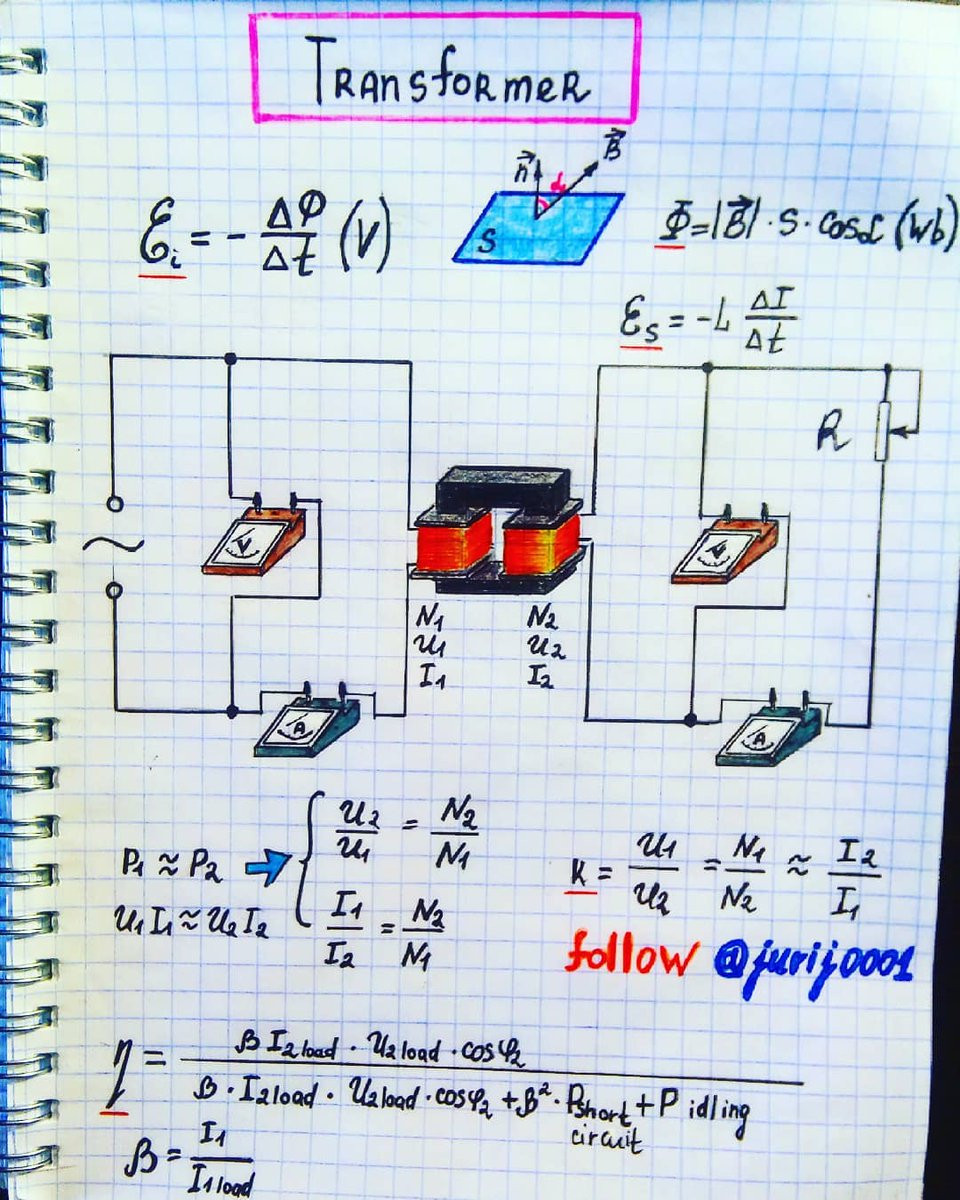 TRANSformeR
ℰi = - ΔΦ/Δt (V)
n⃗ α B⃗
S
Φ=|B⃗|·S·cosα (Wb)
ℰs = -L ΔI/Δt
R
V
V
~
N1 N2
U1 U2
I1 I2
A
A
P1 ≈ P2
U1 I1 ≈ U2 I2
U2/U1 = N2/N1
I1/I2 = N2/N1
K = U1/U2 = N1/N2 ≈ I2/I1
follow @jurij0001
η = β I2load · U2load · cosφ2 / β · I2load · U2load · cosφ2 + β² · Pshort circuit + P idling
β = I1/I1load